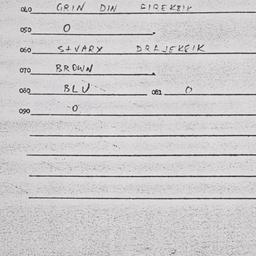 040 GRIN DIN GIREKEIK
050 O
060 STVARX DRAJEKEIK
070 BROWN
080 BLU 081 O
090 O